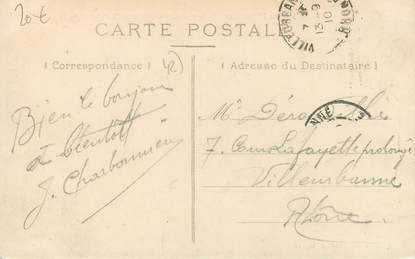 20 €
CARTE POSTALE
VILLEURBANNE
7 13-9 10
( Correspondance )
42
( Adresse du Destinataire )
Bien le bonjour
a bientôtt
J. Charbonnier
Mr
7. Cours Lafayette prolongé
Villeurbanne
Rhône